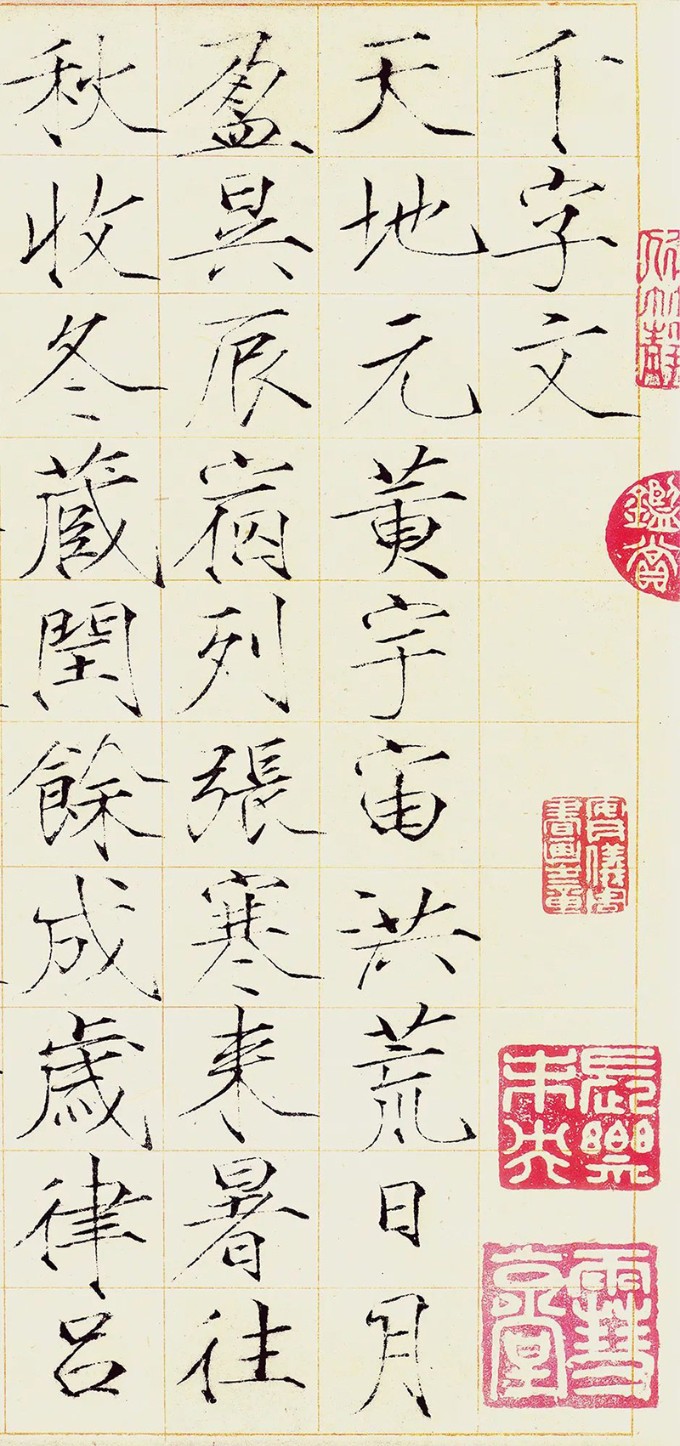 千字文
天地元黃宇宙洪荒日月
盈昃辰宿列張寒来暑往
秋收冬蔵閏餘成歲律呂
鑑賞